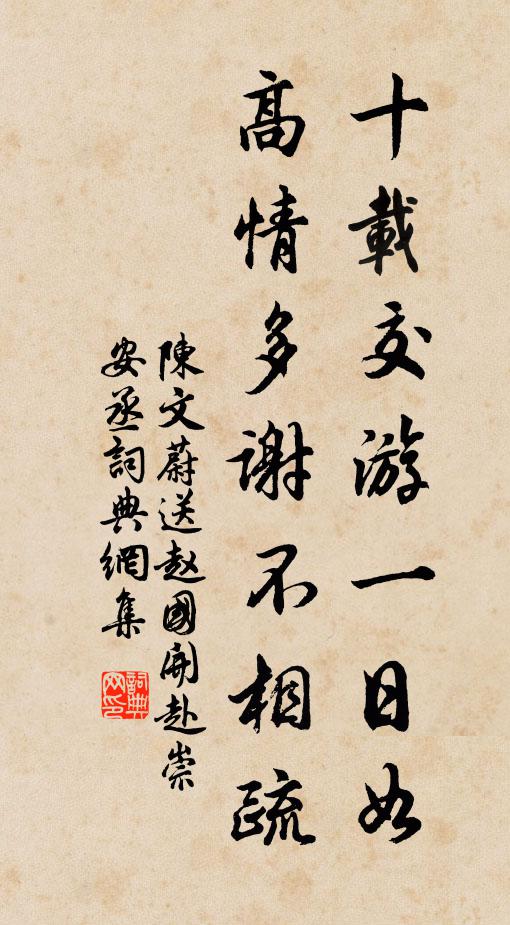 十載交游一日如
高情多謝不相疏
陳文蔚送赵國開赴崇
安丞詞典網集
詞典
网印